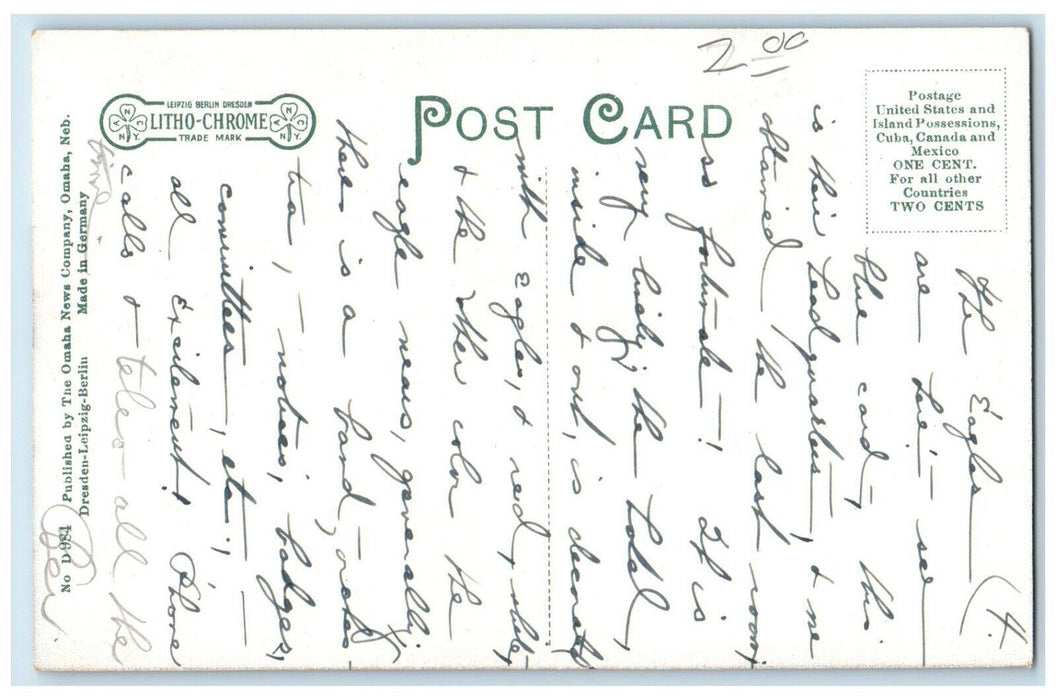 2 00
LEIPZIG BERLIN DRESDEN
LITHO-CHROME
TRADE MARK
POST CARD
Postage
United States and
Island Possessions,
Cuba, Canada and
Mexico
ONE CENT.
For all other
Countries
TWO CENTS
No D-984 Published by The Omaha News Company, Omaha, Neb.
Dresden-Leipzig-Berlin Made in Germany
(4.
The Eagles
are here - see
blue card, this
is their headquarters, & we
obtained the last room
so fortunate -! It is
very lively, the hotel,
inside & out, is decorated
with Eagles, & red, white,
& the other color the
eagle wears, generally,
there is a band, - orches
tra, - notices, badges,
committees, etc., -
all Excitement! Phone
calls & tele- all the
time